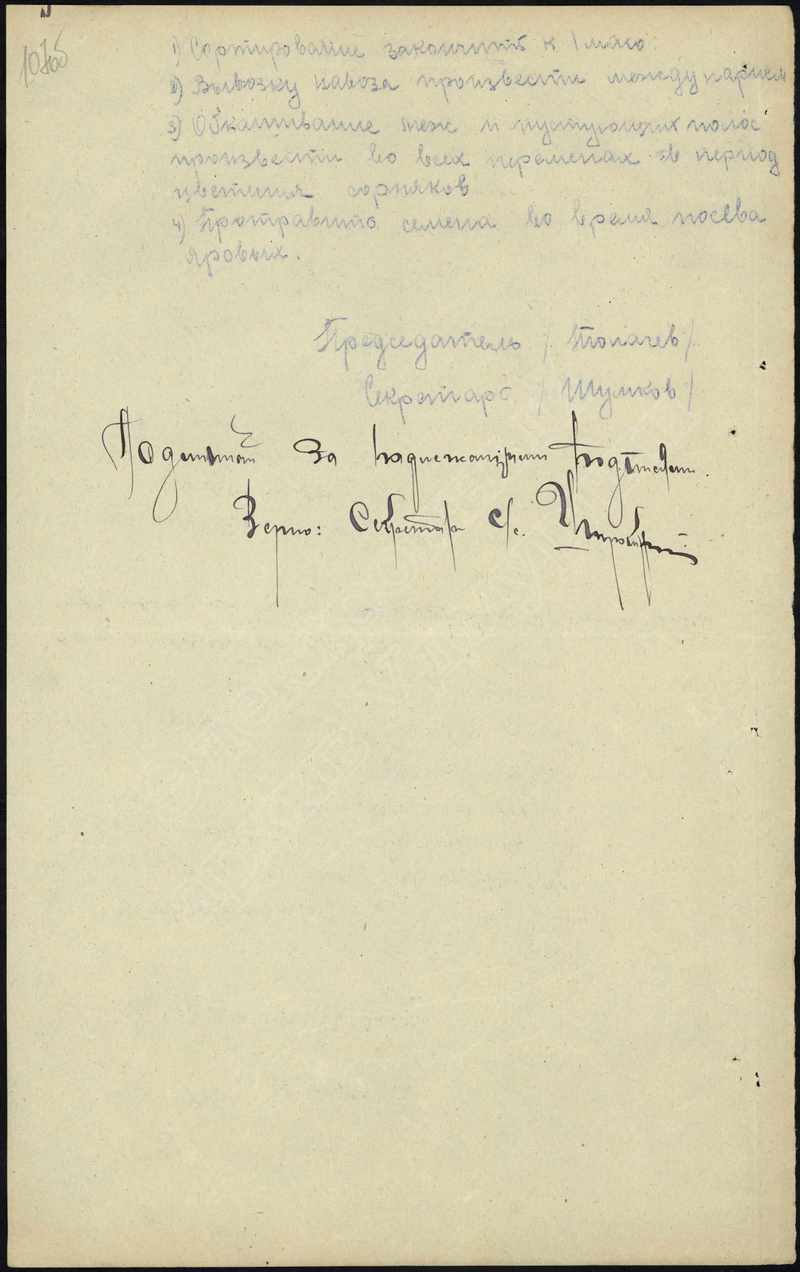 1) Сортирование закончить к 1 маю.
2) Вывозку навоза произвести между парием
3) Обкашивание меж и пустующих полос
произвести во всех переменах в период
цветения сорняков
4) Протравить семена во время посева
яровых.
Председатель / Толачев /
Секретарь / Шумков /
За надлежащими
Верно: Секретарь с/с.